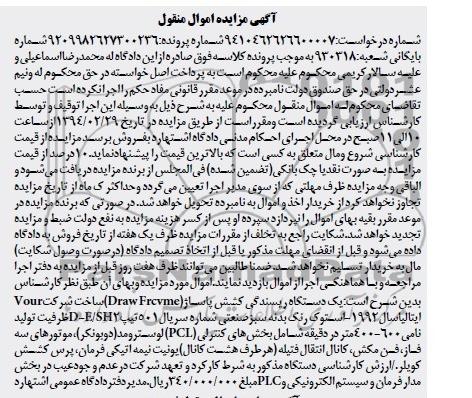 آگهی مزایده اموال منقول
شماره درخواست:۹۴۱۰۴۶۲۶۲۶۶۰۰۰۰۷شماره پرونده:۹۲۰۹۹۸۲۶۲۷۳۰۰۲۳۶ شماره
بایگانی شعبه:۹۳۰۳۱۸ به موجب پرونده کلاسه فوق صادره از این دادگاه له محمدرضا اسماعیلی و
علیه سالار کریمی محکوم علیه محکوم است به پرداخت اصل خواسته در حق محکوم له ونیم
عشر دولتی در حق صندوق دولت نامبرده در موعد مقرر قانونی مفاد حکم را اجرا نکرده است حسب
تقاضای محکوم له اموال منقول محکوم علیه به شرح ذیل به وسیله این اجرا توقیف و توسط
کارشناس ارزیابی گردیده است و مقرر است از طریق مزایده در تاریخ ۱۳۹۴/۰۲/۲۹ از ساعت
۱۰ الی ۱۱ صبح در محل اجرای احکام مدنی دادگاه اشتهارد بفروش برسد مزایده از قیمت
کارشناسی شروع ومال متعلق به کسی است که بالاترین قیمت را پیشنهاد نماید.۱۰ درصد از قیمت
مزایده به صورت نقد یا چک بانکی (تضمین شده) فی المجلس از برنده مزایده دریافت می‌شود و
الباقی وجه مزایده ظرف مهلتی که از سوی مدیر اجرا تعیین می‌گردد و حداکثر یک ماه از تاریخ مزایده
تجاوز نخواهد کرد از خریدار اخذ و اموال به نامبرده تحویل خواهد شد. در صورتی که برنده مزایده در
موعد مقرر بقیه بهای اموال را نپردازد سپرده او پس از کسر هزینه مزایده به نفع دولت ضبط و مزایده
تجدید خواهد شد.شکایت راجع به تخلف از مقررات مزایده ظرف یک هفته از تاریخ فروش به دادگاه
داده می‌شود و قبل از انقضای مهلت مذکور یا قبل از اتخاذ تصمیم دادگاه (درصورت وصول شکایت)
مال به خریدار تسلیم نخواهد شد.ضمنا طالبین می‌توانند ظرف هفت روز قبل از مزایده به دفتر اجرا
مراجعه و با هماهنگی اجرا از اموال بازدید نمایند.اموال مورد مزایده و بهای آن طبق نظر کارشناس
بدین شرح است:یک دستگاه ریسندگی کشش پاساژ(DrawFrcvme) ساخت شرکت Vour
ایتالیا سال ۱۹۹۲-استوک رنگ بدنه سبز صنعتی شماره سریال ۰۰۱ تیپ D-E/SH۲ ظرفیت تولید
نامی ۶۰۰-۴۰۰ متر در دقیقه شامل بخش‌های کنترلی (PCL) لوستر ومد (دوبونکر)، موتورهای سه
فاز، فن مکش، کانال انتقال فتیله (هر طرف هشت کانال) یونیت نیمه اتیکی فرمان، پرس کشش
کویلر،/ارزش کارشناسی دستگاه مذکور به شرط کارکرد و تعهد شرکت در عدم وجود عیب در بخش
مدار فرمان و سیستم الکترونیکی و PLC مبلغ ۳۴۰/۰۰۰/۰۰۰ ریال.مدیر دفتر دادگاه عمومی اشتهارد